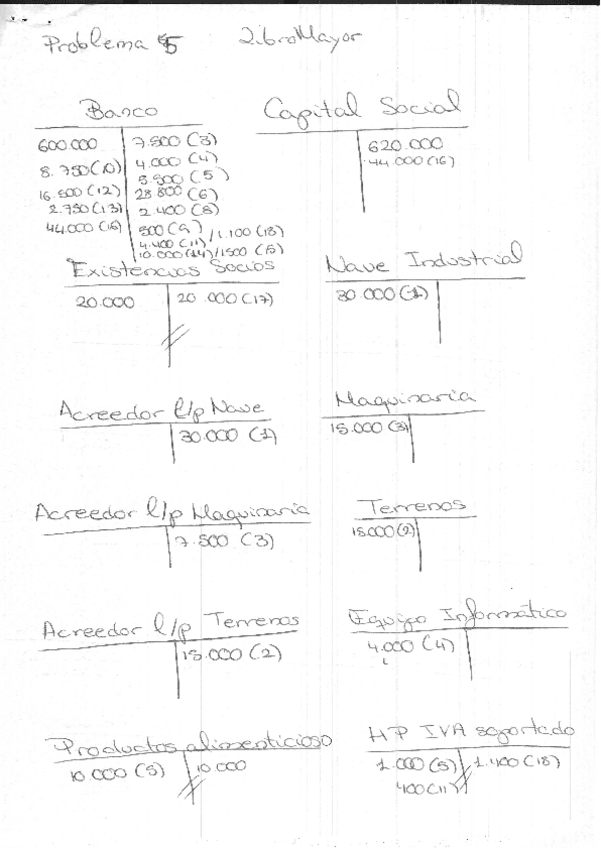 Problema 5 Libro Mayor
Banco
600.000 7.500 (3)
8.750 (10) 4.000 (4)
5.500 (5)
16.500 (12) 28.800 (6)
2.750 (13) 2.400 (8)
44.000 (16) 500 (9) / 1.100 (18)
4.400 (11)
10.000 (14) / 1500 (15)
Capital Social
620.000
44.000 (16)
Existencias Socios
20.000 20.000 (17)
Nave Industrial
30.000 (1)
Acreedor l/p Nave
30.000 (1)
Maquinaria
15.000 (3)
Acreedor l/p Maquinaria
7.500 (3)
Terrenos
15.000 (2)
Acreedor l/p Terrenos
15.000 (2)
Equipo Informático
4.000 (4)
Productos alimenticioso
10.000 (5) 10.000
HP IVA soportado
1.000 (5) 1.400 (18)
400 (11)